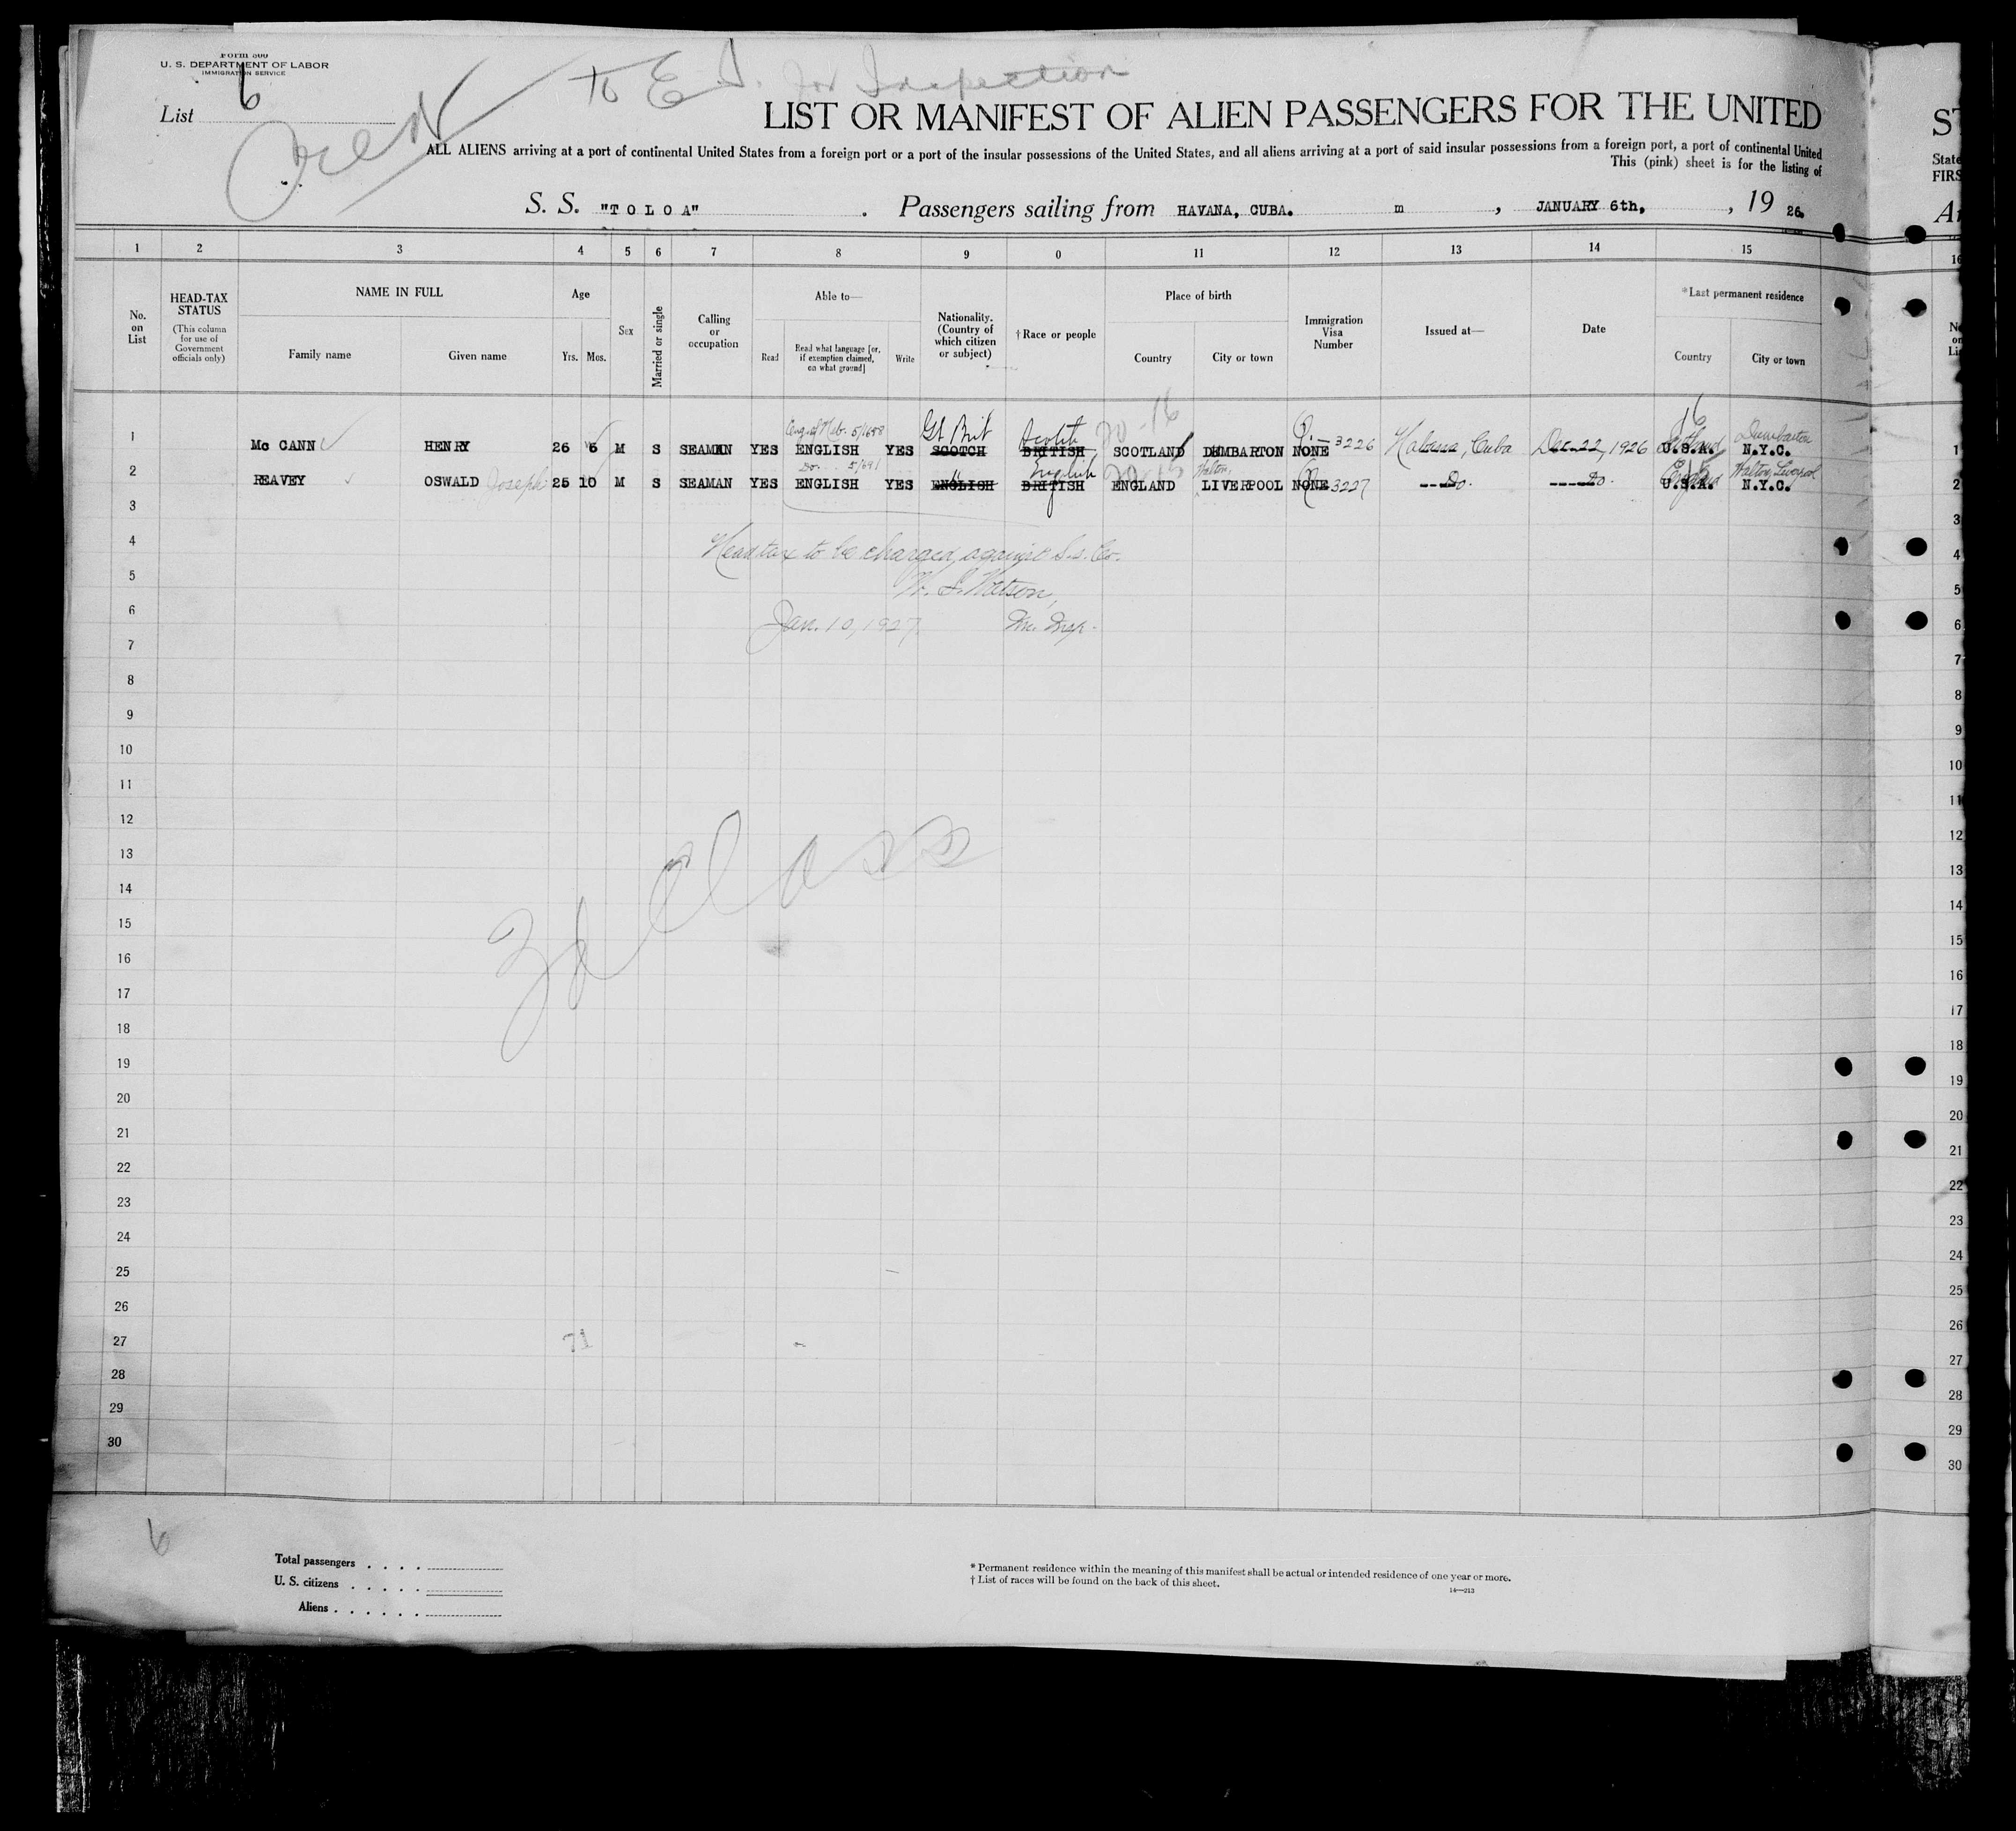 Form 500
U. S. DEPARTMENT OF LABOR
IMMIGRATION SERVICE
List 6
To E. I. for Inspection
LIST OR MANIFEST OF ALIEN PASSENGERS FOR THE UNITED
ALL ALIENS arriving at a port of continental United States from a foreign port or a port of the insular possessions of the United States, and all aliens arriving at a port of said insular possessions from a foreign port, a port of continental United
This (pink) sheet is for the listing of
S. S. "TOLOA" . Passengers sailing from HAVANA, CUBA. m , JANUARY 6th, , 19 26.
1 2 3 4 5 6 7 8 9 0 11 12 13 14 15
No. on List
HEAD-TAX STATUS
(This column for use of Government officials only)
NAME IN FULL
Family name Given name
Age
Yrs. Mos.
Sex
Married or single
Calling or occupation
Able to—
Read
Read what language [or, if exemption claimed, on what ground]
Write
Nationality. (Country of which citizen or subject)
† Race or people
Place of birth
Country City or town
Immigration Visa Number
Issued at—
Date
*Last permanent residence
Country City or town
20-16 16
Gt Brit Scotch Scotland Dumbarton
1 Mc CANN HENRY 26 5 M S SEAMAN YES ENGLISH YES SCOTCH BRITISH SCOTLAND DUMBARTON NONE 3226 Habana, Cuba Dec. 22, 1926 U.S.A. N.Y.C. 1
Do. " English Walton, England Walton, Liverpool
2 REAVEY OSWALD Joseph 25 10 M S SEAMAN YES ENGLISH YES ENGLISH BRITISH ENGLAND LIVERPOOL NONE 3227 ---- Do. ----- Do. U.S.A. N.Y.C. 2
3 3
4 Head tax to be charged against S.S. Co. 4
5 W. S. Watson, 5
6 Jan. 10, 1927. Im. Insp. 6
7 7
8 8
9 9
10 10
11 11
12 12
13 13
3d Class
14 14
15 15
16 16
17 17
18 18
19 19
20 20
21 21
22 22
23 23
24 24
25 25
26 26
27 71 27
28 28
29 29
30 30
6
Total passengers . . . .
U. S. citizens . . . . .
Aliens . . . . . .
* Permanent residence within the meaning of this manifest shall be actual or intended residence of one year or more.
† List of races will be found on the back of this sheet.
14—213
ST
State
FIRS
Ar
16
No
on
Lis